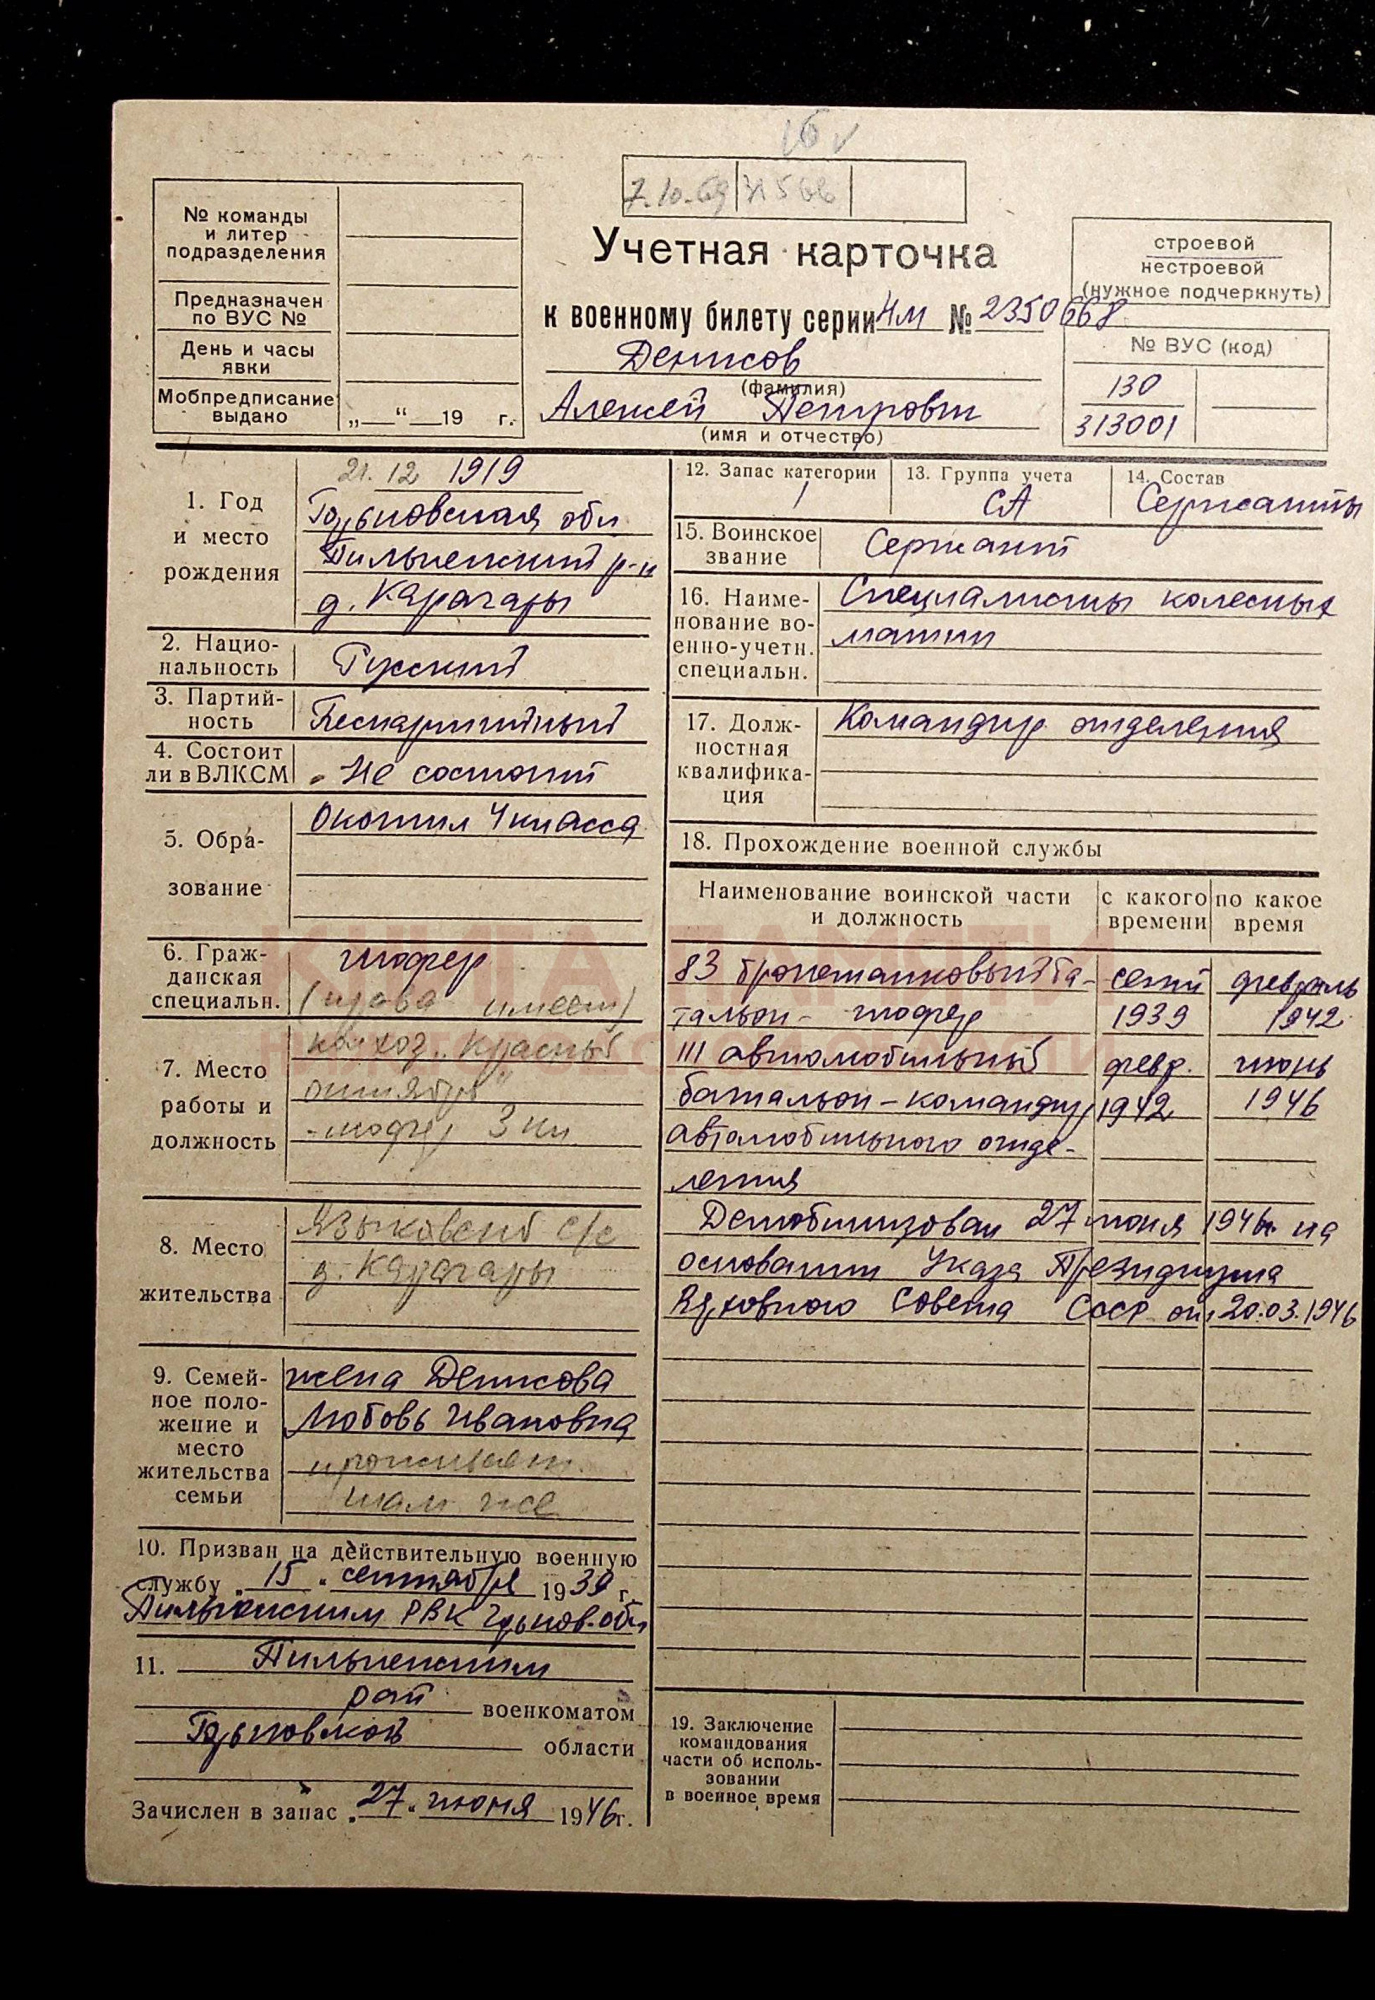 7.10.69
№ команды
и литер
подразделения
Предназначен
по ВУС №
День и часы
явки
Мобпредписание
выдано
„ “ 19 г.
Учетная карточка
к военному билету серии НМ № 2350668
Денисов
(фамилия)
Алексей Петрович
(имя и отчество)
строевой
нестроевой
(нужное подчеркнуть)
№ ВУС (код)
130
313001
1. Год
и место
рождения
21.12 1919
Горьковская обл
Пильненский р-н
д. Карачары
2. Нацио-
нальность
Русский
3. Партий-
ность
Беспартийный
4. Состоит
ли в ВЛКСМ
Не состоит
5. Обра-
зование
Окончил 4 класса
6. Граж-
данская
специальн.
шофер
(права имеет)
7. Место
работы и
должность
колхоз „Красный
октябрь"
- шофер 3 кл.
8. Место
жительства
Языковский с/с
д. Карачары
9. Семей-
ное поло-
жение и
место
жительства
семьи
жена Денисова
Любовь Ивановна
проживает
там же
10. Призван на действительную военную
службу „15" сентября 1939 г.
Пильненским РВК Горьков. обл
11. Пильненским
рай военкоматом
Горьковской области
Зачислен в запас „27" июня 1946 г.
12. Запас категории
1
13. Группа учета
СА
14. Состав
Сержанты
15. Воинское
звание
Сержант
16. Наиме-
нование во-
енно-учетн.
специальн.
Специалисты колесных
машин
17. Долж-
ностная
квалифика-
ция
Командир отделения
18. Прохождение военной службы
Наименование воинской части
и должность
с какого
времени
по какое
время
83 бронетанковый ба- сент февраль
тальон - шофер 1939 1942
111 автомобильный февр. июнь
батальон - командир 1942 1946
автомобильного отде-
ления
Демобилизован 27 июня 1946г. на
основании Указа Президиума
Верховного Совета СССР от 20.03.1946
19. Заключение
командования
части об исполь-
зовании
в военное время
КНИГА ПАМЯТИ
НИЖЕГОРОДСКОЙ ОБЛАСТИ